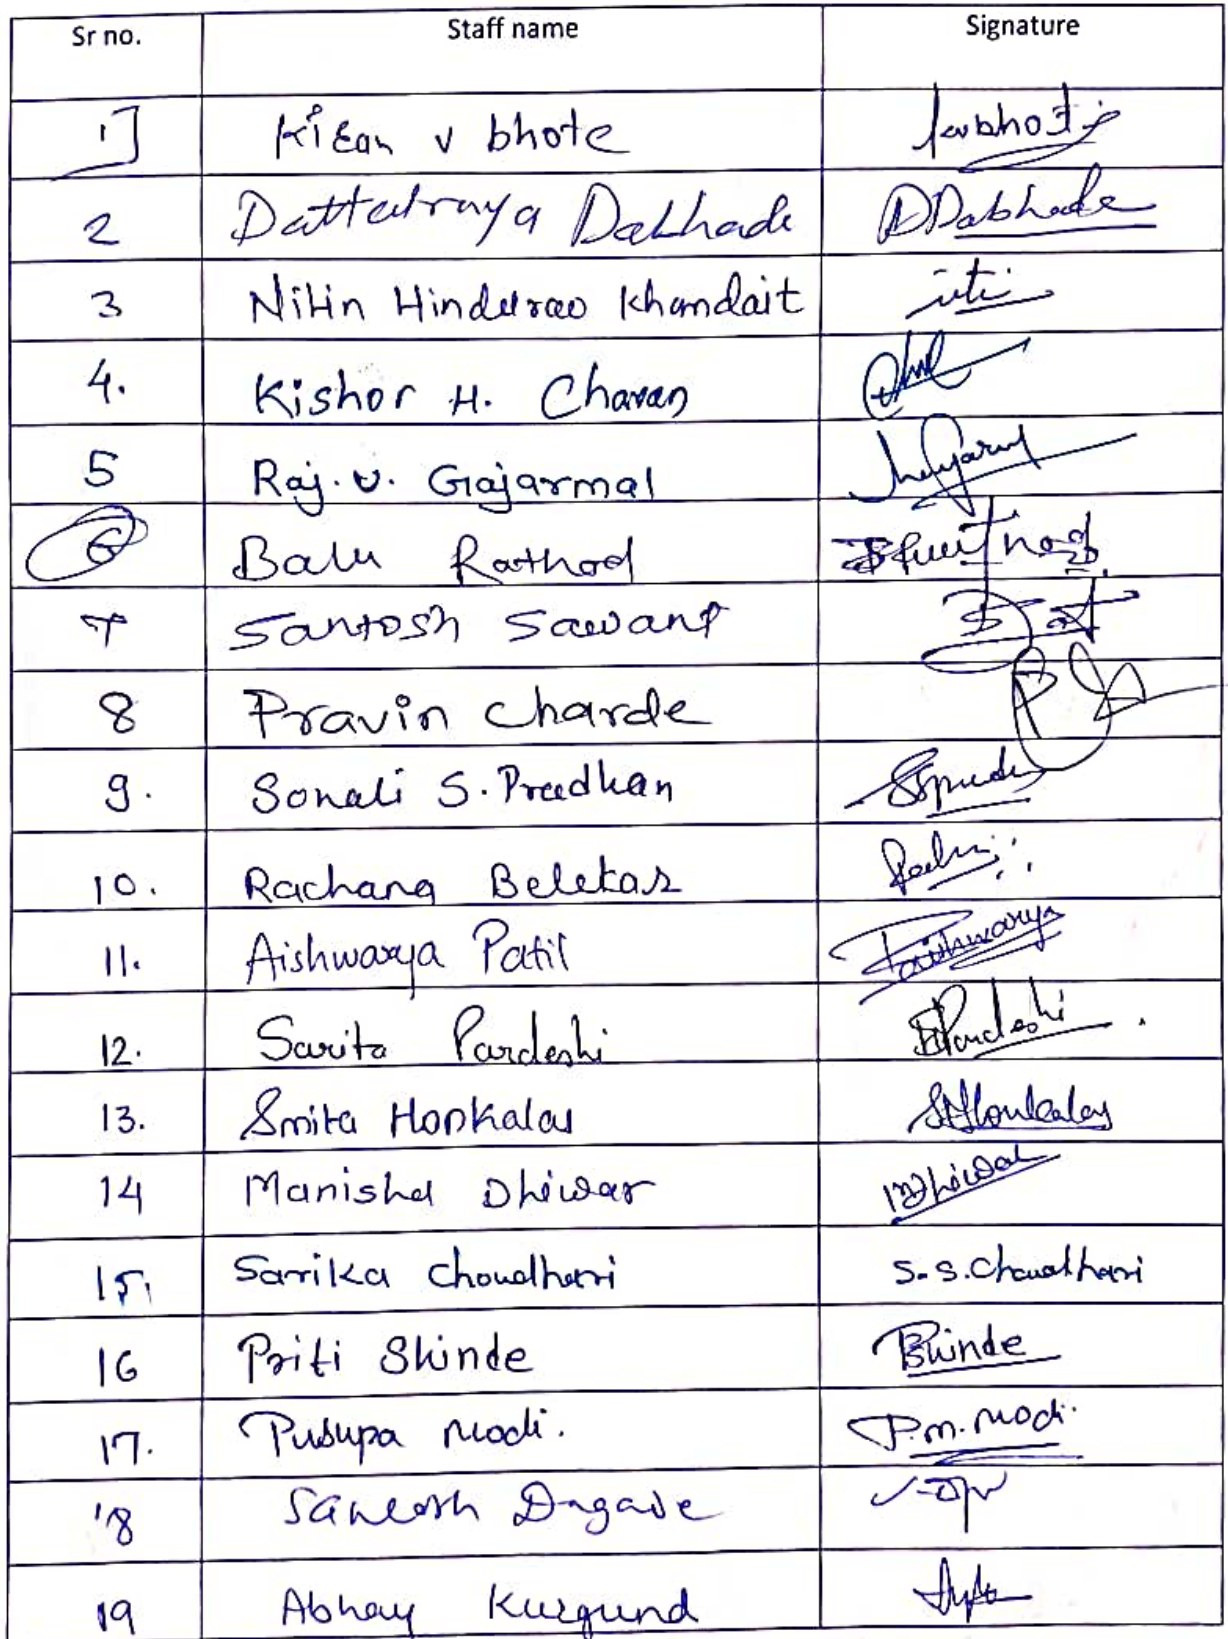 Sr no. Staff name Signature
1] Kiran v bhote kvbhote
2 Dattatraya Dabhade DDabhade
3 Nitin Hindurao Khandait
4. Kishor H. Chavan
5 Raj. v. Gajarmal
6 Balu Rathod
7 Santosh Sawant
8 Pravin Charde
9. Sonali S. Pradhan
10. Rachana Belekar
11. Aishwarya Patil Paishwarya
12. Sarita Pardeshi SPardeshi
13. Smita Honkalas SHonkalas
14 Manisha Dhiwar MDhiwar
15. Sarika Choudhari S. S. Choudhari
16 Priti Shinde PShinde
17. Pusupa Modi. P. M. Modi.
18 Santosh Dugade
19 Abhay Kurgund